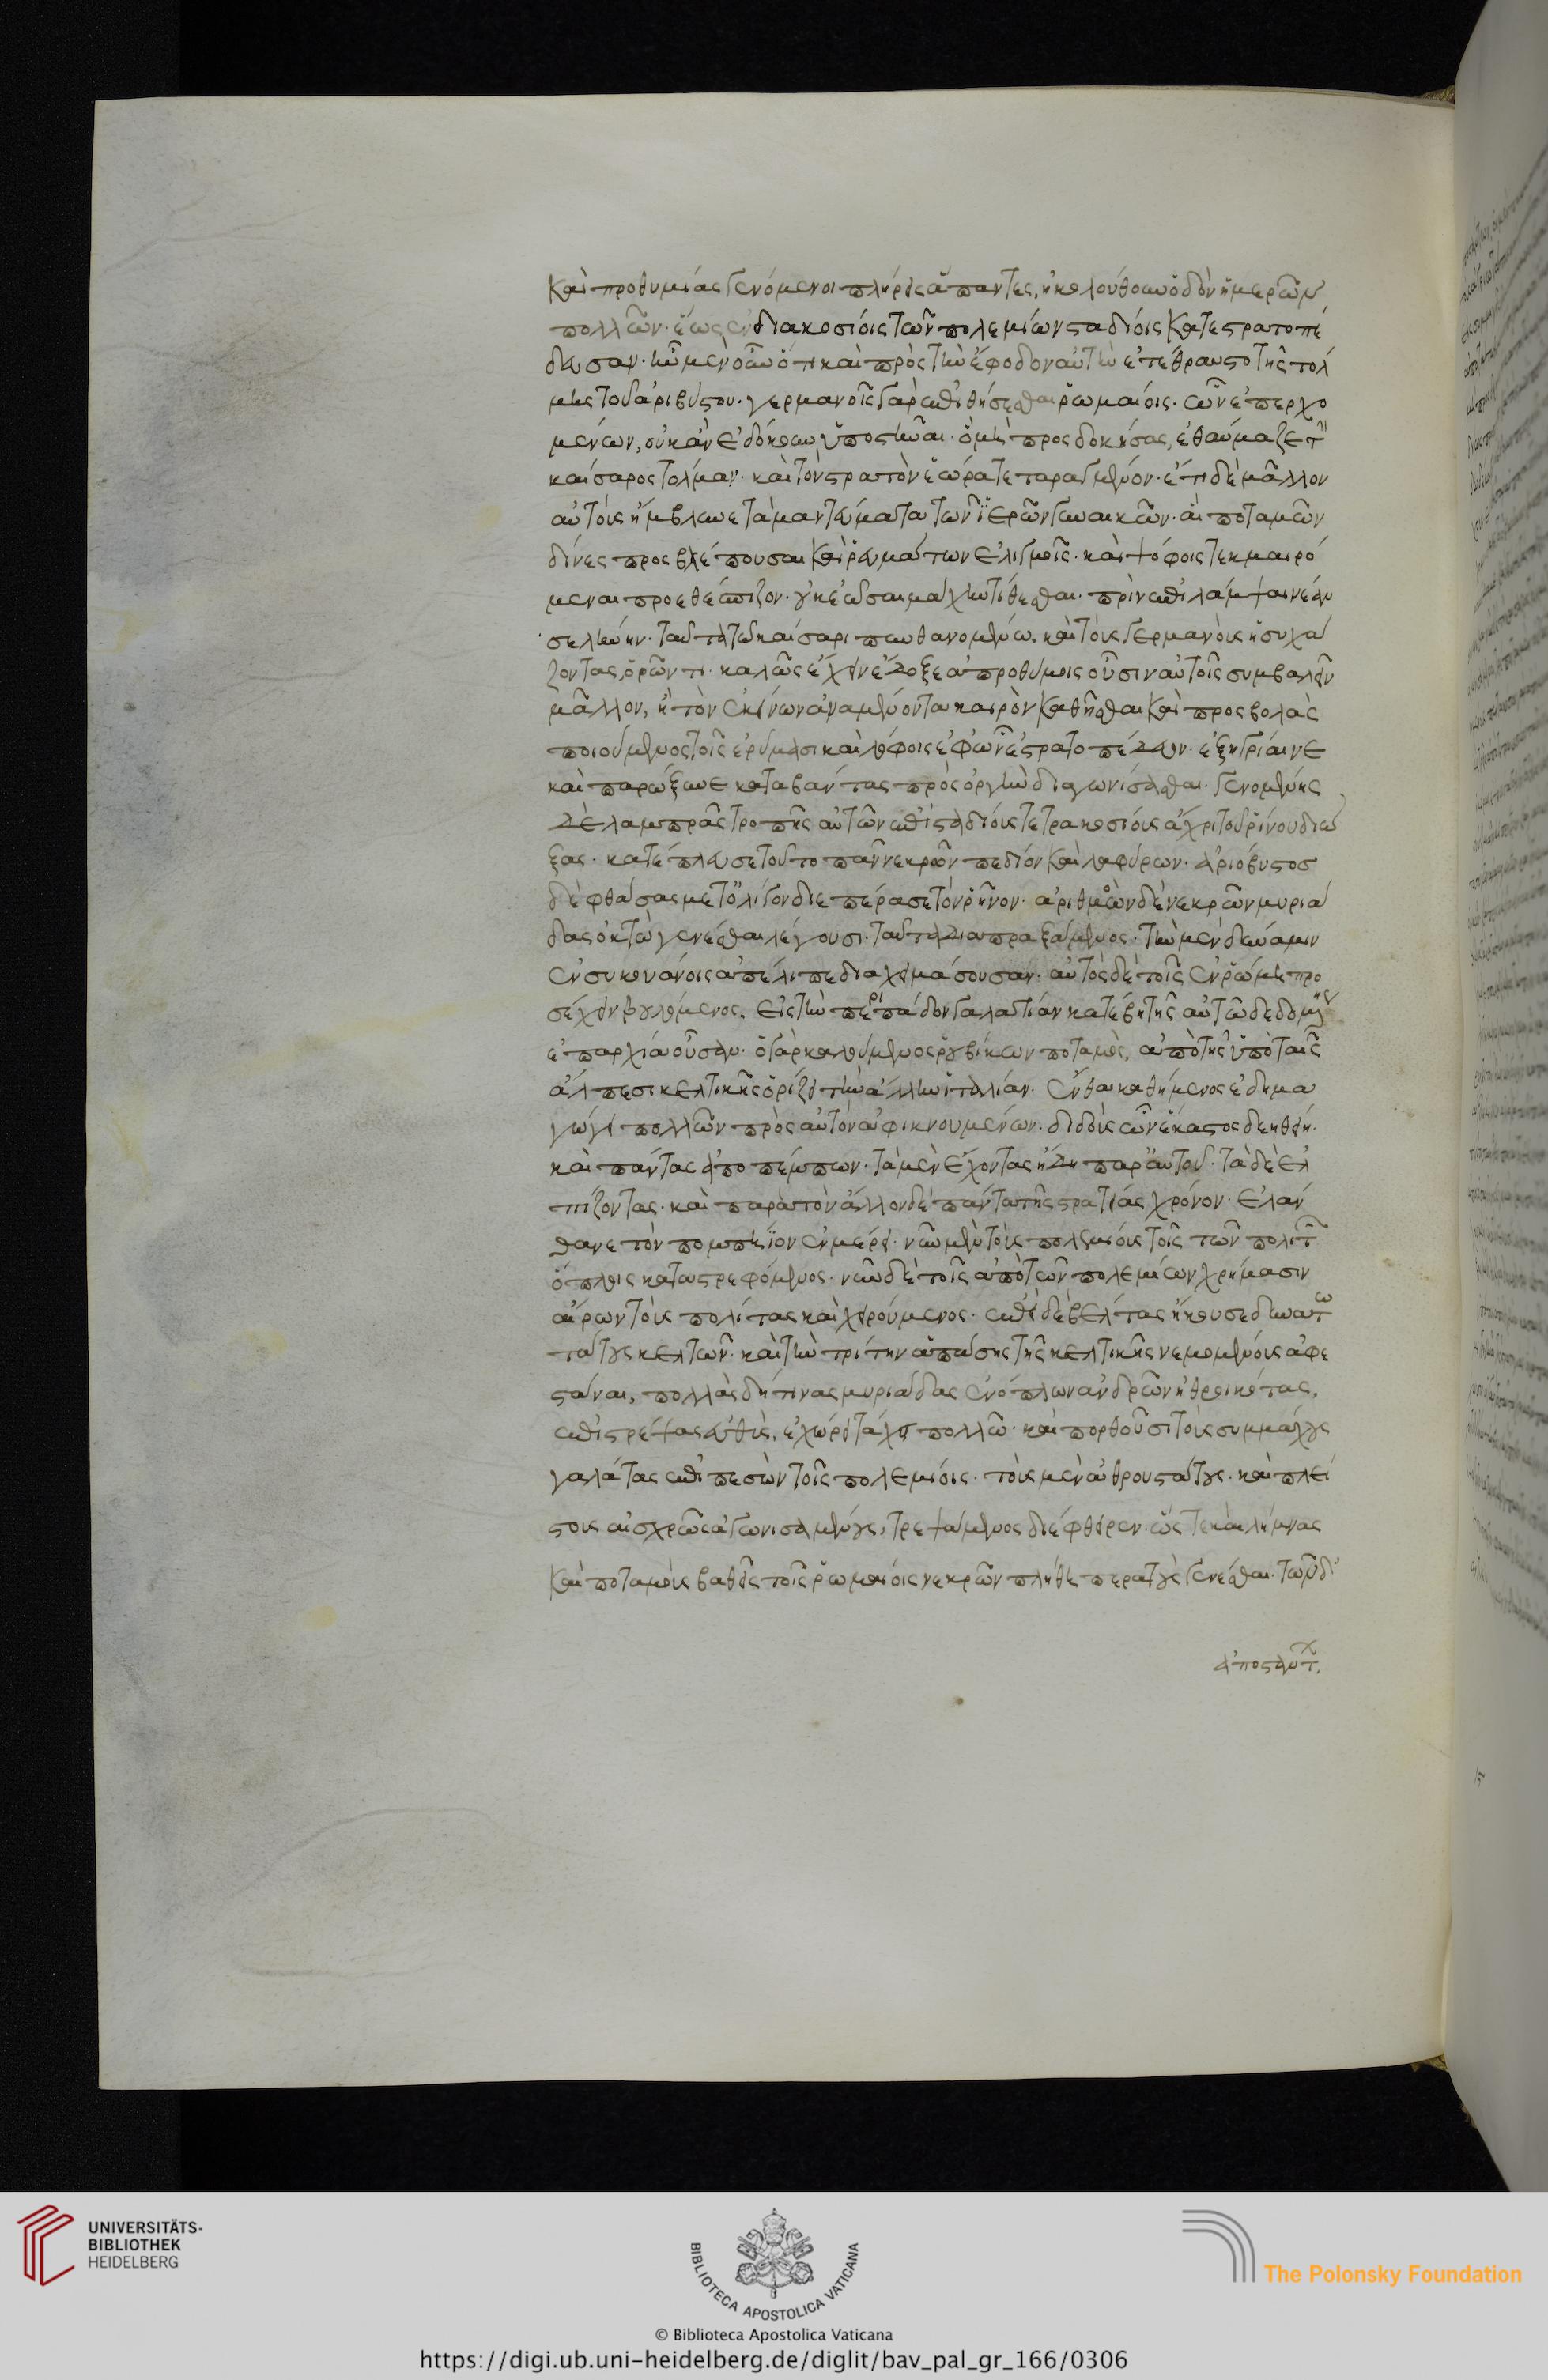 καὶ προθυμίας γενόμενοι πλήρεις ἅπαντες, ἠκολούθουν ὁδὸν ἡμερῶν
πολλῶν· ἕως ἐν διακοσίοις τῶν πολεμίων σταδίοις κατεστρατοπέ
δευσαν· ἦν μὲν οὖν ὅτι καὶ πρὸς τὴν ἔφοδον αὐτὴν ἐτέθραυστο τῆς τόλ
μης τοῦ ἀριβύστου· γερμανοῖς γὰρ ἐπιθήσεσθαι ῥωμαίοις· ὧν ἐπερχο
μένων, οὐκ ἂν ἐδόκουν ὑποστῆναι· ὃ μὴ προσδοκήσας, ἐθαύμαζε τὴν
καίσαρος τόλμαν· καὶ τὸν στρατὸν ἑώρα τεταραγμένον· ἔτι δὲ μᾶλλον
αὐτοὺς ἤμβλυνε τὰ μαντεύματα τῶν ἱερῶν γυναικῶν· αἳ ποταμῶν
δίνες προσβλέπουσαι καὶ ῥευμάτων ἑλιγμοῖς· καὶ ψόφοις τεκμαιρό
μεναι προεθέσπιζον· οὐκ ἐῶσαι μάχην τίθεσθαι· πρὶν ἐπιλάμψαι νέαν
σελήνην· ταῦτα τῶ καίσαρι πυνθανομένω· καὶ τοὺς γερμανοὺς ἡσυχά
ζοντας ὁρῶντι· καλῶς ἔχειν ἔδοξε ἀπροθύμοις οὖσιν αὐτοῖς συμβαλεῖν
μᾶλλον, ἢ τὸν ἐκείνων ἀναμένοντα καιρὸν καθῆσθαι καὶ προσβολὰς
ποιούμενος τοῖς ἐρύμασι καὶ λόφοις ἐφ' ὧν ἐστρατοπέδευον· ἐξηγρίαινε
καὶ παρώξυνε καταβάντας πρὸς ὀργὴν διαγωνίσασθαι· γενομένης
δὲ λαμπρᾶς τροπῆς αὐτῶν ἐπὶ σταδίους τετρακοσίους ἄχρι τοῦ ῥίνου διώ
ξας· κατέπλησε τοῦτο πᾶν νεκρῶν πεδίον καὶ λαφύρων· ἀριόβυστος
δὲ φθάσας μετ' ὀλίγον διεπέρασε τὸν ῥῆνον· ἀριθμὸν δὲ νεκρῶν μυριά
δας ὀκτὼ γενέσθαι λέγουσι· ταῦτα διαπραξάμενος· τὴν μὲν δύναμιν
ἐν συκουάνοις ἀπέλιπε διαχειμάσουσαν· αὐτὸς δὲ τοῖς ἐν ῥώμη προ
σέχειν βουλόμενος· εἰς τὴν περὶ πάδον γαλατίαν κατέβη τῆς αὐτῶ δεδομένης
ἐπαρχίαν οὖσαν· ὁ γὰρ καλούμενος ῥουβίκων ποταμὸς, ἀπὸ τῆς ὑπὸ ταῖς
ἄλπεσι κελτικῆς ὁρίζει τὴν ἄλλην ἰταλίαν· ἔνθα καθήμενος ἐδημα
γώγει πολλῶν πρὸς αὐτὸν ἀφικνουμένων· διδοὺς ὧν ἕκαστος δεηθείη·
καὶ πάντας ἀποπέμπων· τὰ μὲν ἔχοντας ἤδη παρ' αὐτοῦ· τὰ δὲ ἐλ
πίζοντας· καὶ παρὰ τὸν ἄλλον δὲ πάντα τῆς στρατείας χρόνον· ἐλάν
θανε τὸν πομπήϊον ἐν μέρει· νῦν μὲν τοὺς πολεμίους τοῖς τῶν πολιτῶν
ὅπλοις καταστρεφόμενος· νῦν δὲ τοῖς ἀπὸ τῶν πολεμίων χρήμασιν
αἵρων τοὺς πολίτας καὶ χειρούμενος· ἐπεὶ δὲ βέλγας ἤκουσε δυνατω
τάτους κελτῶν· καὶ τὴν τρίτην ἁπάσης τῆς κελτικῆς νεμομένους ἀφε
στάναι, πολλὰς δή τινας μυριάδας ἐνόπλων ἀνδρῶν ἠθροικότας,
ἐπιστρέψας εὐθὺς, ἐχώρει τάχει πολλῶ· καὶ πορθοῦσι τοὺς συμμάχους
γαλάτας ἐπιπεσὼν τοῖς πολεμίοις· τοὺς μὲν ἀθρουστάτους· καὶ πλεί
στους αἰσχρῶς ἀγωνισαμένους, τρεψάμενος διέφθειρεν· ὥστε καὶ λίμνας
καὶ ποταμοὺς βαθεῖς τοῖς ῥωμαίοις νεκρῶν πλήθει περατοὺς γενέσθαι· τῶν δ'
ἀποστάντ.
UNIVERSITÄTS-
BIBLIOTHEK
HEIDELBERG
BIBLIOTECA APOSTOLICA VATICANA
The Polonsky Foundation
© Biblioteca Apostolica Vaticana
https://digi.ub.uni-heidelberg.de/diglit/bav_pal_gr_166/0306